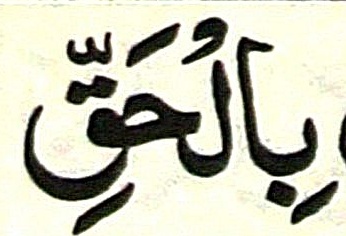 بِالْحَقِّ